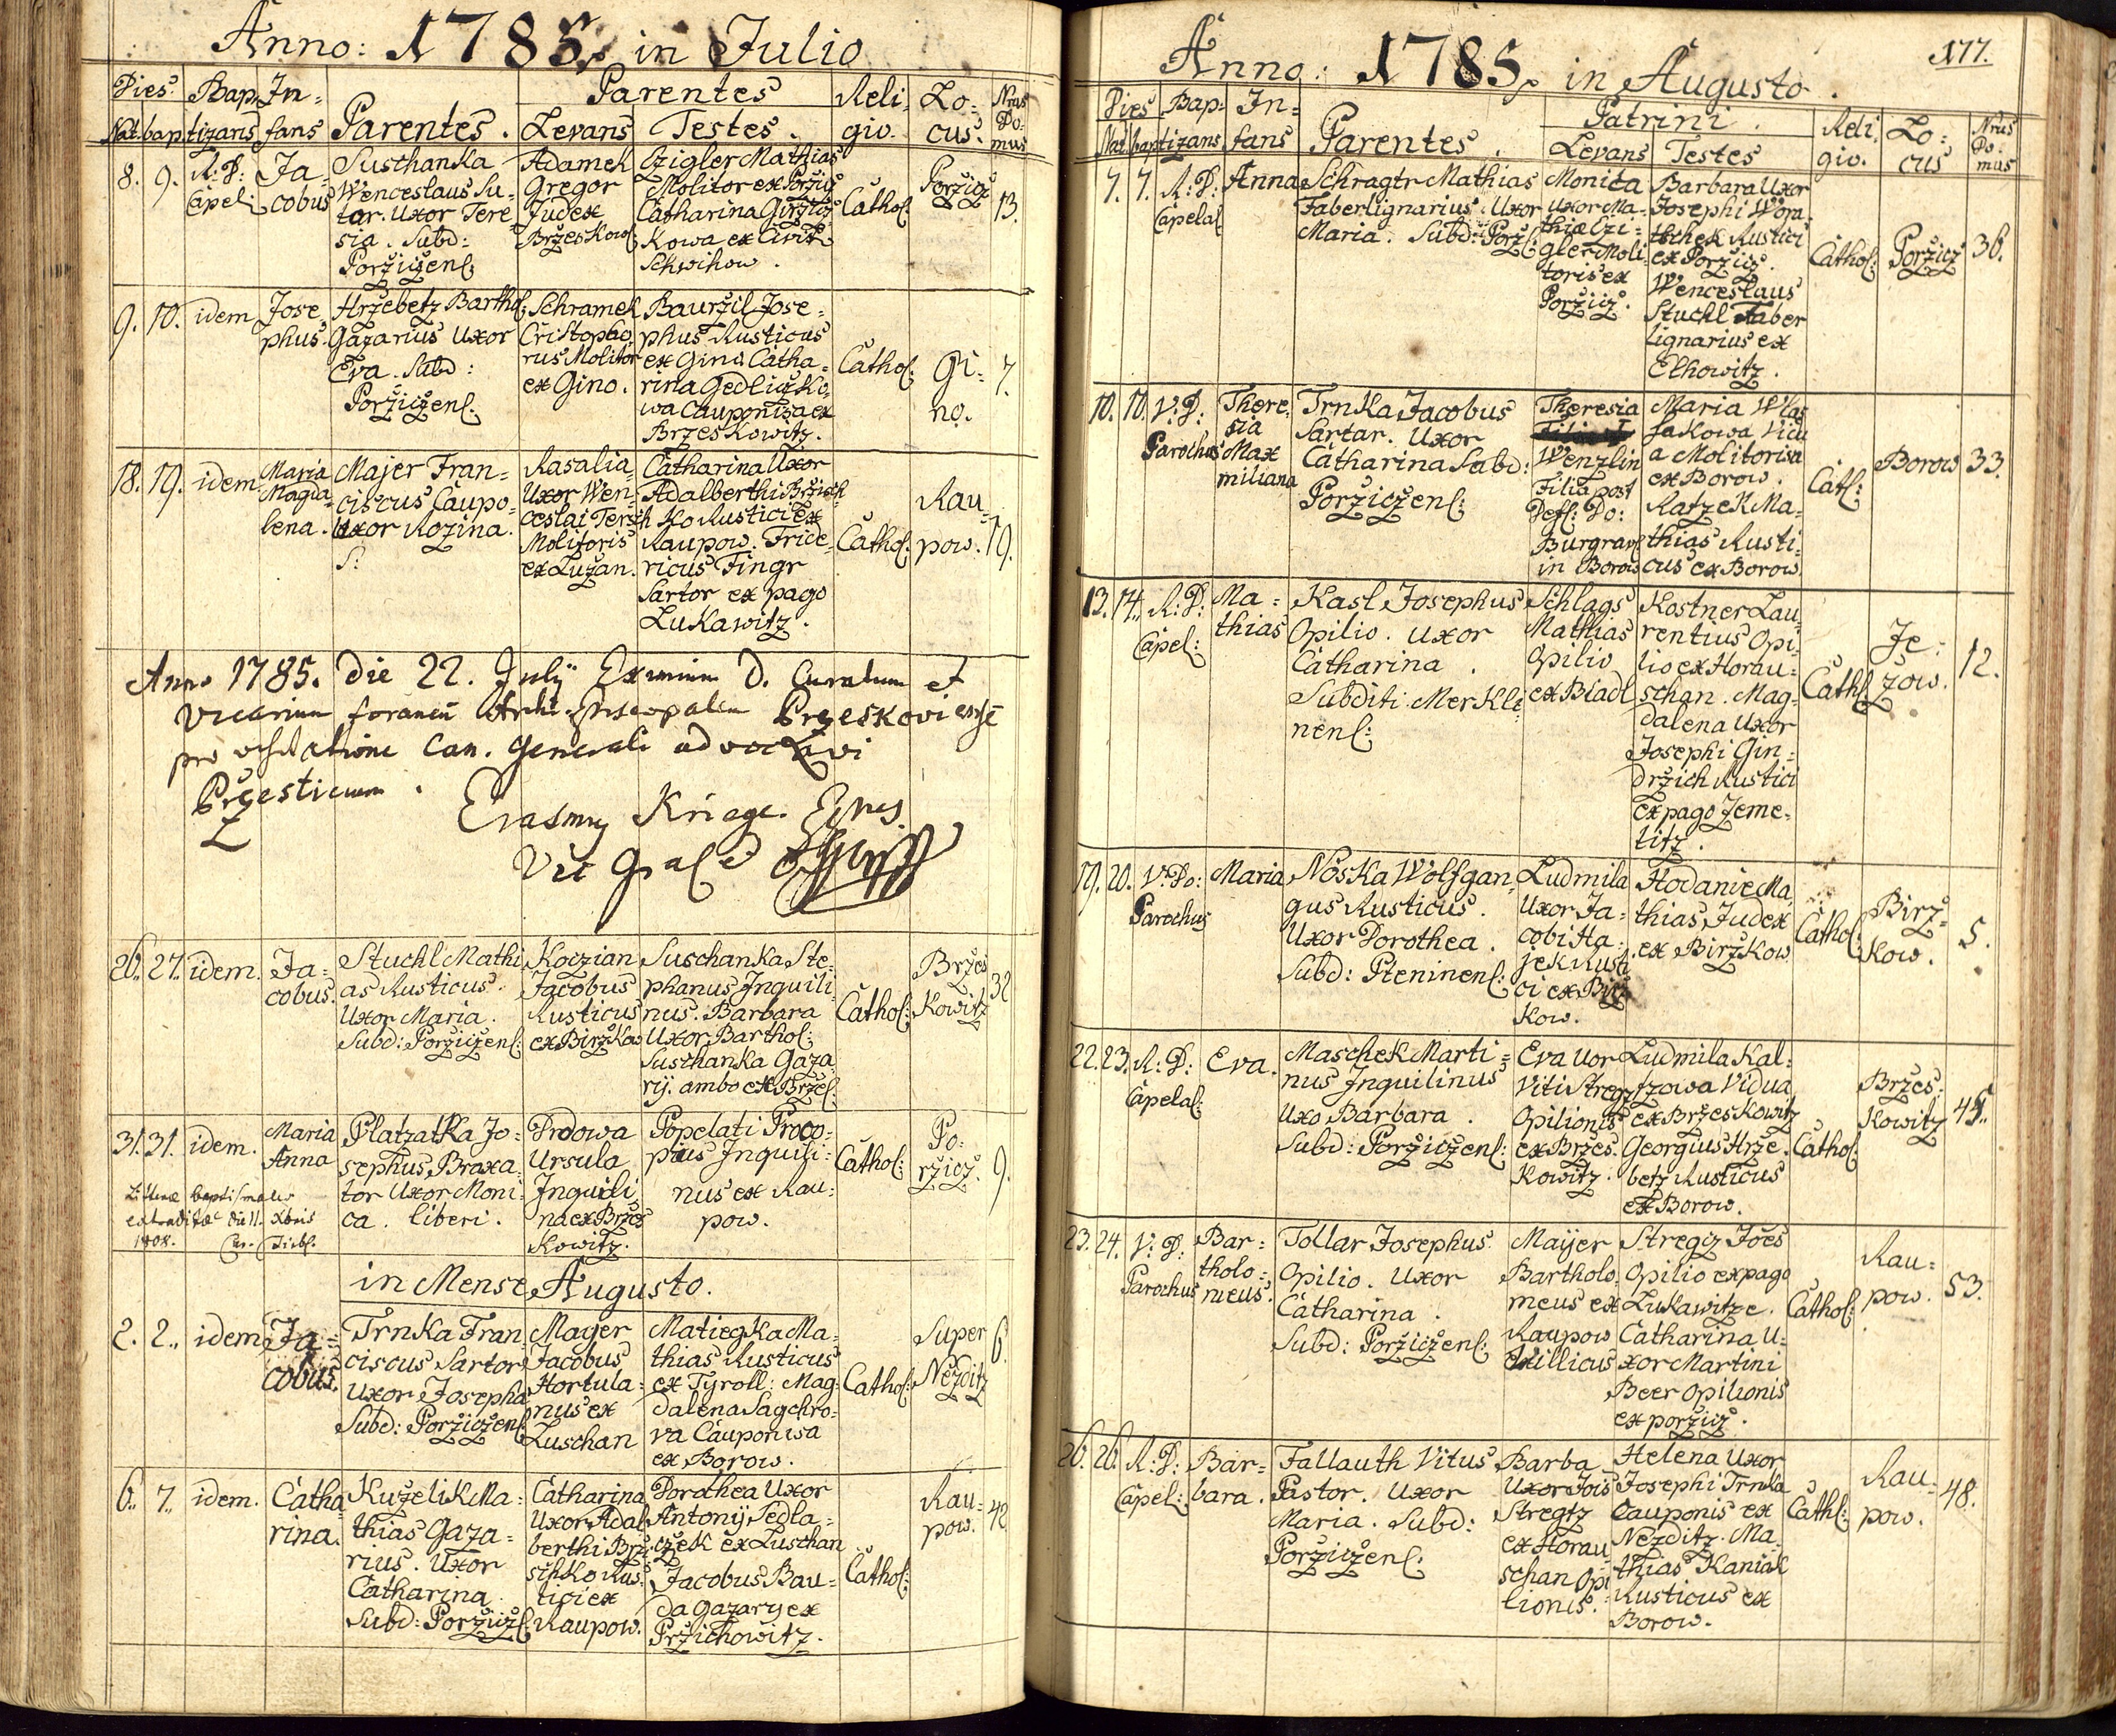 Anno: 1785. in Julio
Dies Bap= In= Parentes Reli= Lo= Nrus
Nat. baptizans fans Parentes. Levans Testes. gio. cus. Do=mus
8. 9. R: D: Capel:
Ja=
cobus
Suschanka
Wenceslaus Su=
tor. Uxor Tere
sia. Subd:
Poržiczenſ:
Adamek
Gregor
Judex
Brżeskow:
Czigler Mathias
Molitor ex Poržicz
Catharina Girzicz
Kowa ex Civit.
Schwihow.
Cathol:
Poržicz
13.
9. 10. idem
Jose
phus.
Hržebetz Barthol:
Gazarius Uxor
Eva. Subd:
Poržiczenſ:
Schramek
Cristopho,
rus Molitor
ex Gino.
Bauržil Jose=
phus Rusticus
ex Gino Catha=
rina Gedliczko=
wa Cauponisa ex
Brzeskowitz.
Cathol:
Gi=
no.
7.
18. 19. idem
Maria
Magda
lena.
Majer Fran=
ciscus Caupo=
Uxor Rozina.
S:
Rasalia
Uxor Wen=
ceslai Tersch
Molitoris
ex Lužan.
Catharina Uxor
Adalberthi Bržisch
Ko Rustici Ex
Raupow. Fride=
ricus Fingr
Sartor ex pago
Lukawitz.
Cathol:
Rau=
pow.
19.
Anno 1785. die 22. July Eximium D. Curatum et
Vicarium foraneu Archi-Episcopalem
pro Can. Generali
Erasmus
26. 27. idem.
Ja=
cobus.
Stuchl Mathi
as Rusticus.
Uxor Maria.
Subd: Poržiczenſ:
Koczian
Jacobus
Rusticus
ex Biržkow
Suschanka Ste=
phanus Inquili=
nus. Barbara
Uxor Barthol:
Suschanka Gaza
ry. ambo ex Bržeſ:
Cathol:
Bržes
Kowitz
32
31. 31. idem.
Maria
Anna
baptismales
die 11. Xbris
1808.
Platzatka Jo=
sephus Braxa=
tor Uxor Moni=
ca. liberi.
Drdowa
Ursula
Inquili
na ex Bržes
Kowitz.
Popelati Proco=
pius Inquili=
nus ex Rau=
pow.
Cathol:
Po=
ržicz.
9.
in Mense Augusto.
2. 2. idem
Ja=
cobus.
Trnka Fran
ciscus Sartor
Uxor Josepha
Subd: Poržiczenſ:
Mayer
Jacobus
Hortula=
nus ex
Luschan
Matiegka Ma=
thias Rusticus
ex Tyroll: Mag=
dalena Sagchro=
va Cauponisa
ex Borow.
Cathol:
Super
Nezditz
6.
6. 7. idem.
Catha
rina.
Kuželik Ma=
thias Gaza=
rius. Uxor
Catharina.
Subd: Poržiczſ:
Catharina
Uxor Adal
berthi Brži
schko Rus=
tici ex
Raupow.
Dorothea Uxor
Antonij Sedla=
czek ex Luschan
Jacobus Bau=
da Gazary ex
Pržichowitz.
Cathol:
Rau=
pow.
42
177.
Anno: 1785. in Augusto.
Dies Bap= In= Patrini. Reli Lo= Nrus
Nat. baptizans fans Parentes. Levans Testes gio. cus Do=mus
7. 7. R: D: Capelaſ
Anna
Schragtr Mathias
Faber lignarius. Uxor
Maria. Subd: Poržſ:
Monica
Uxor Ma=
thiæ Czi=
gler Moli=
toris ex
Poržicz.
Barbara Uxor
Josephi Wopa=
tschek Rustici
ex Poržicz.
Wenceslaus
Stuchl Faber
lignarius ex
Elhowitz.
Cathol:
Poržicz
36.
10. 10. V: D:
Parochus
There=
sia
Max
miliana
Trnka Jacobus
Sartar. Uxor
Catharina Subd:
Poržiczenſ:
Theresia
Wenzlin
Filia post
Defſ: Do:
Burgravſ
in Borow
Maria Wlas
sakowa Vidu
a Molitorisa
ex Borow.
Ratzek Ma=
thias Rusti=
cus ex Borow.
Catſ:
Borow
33.
13. 14. R: D:
Capel:
Ma=
thias
Kasl Josephus
Opilio. Uxor
Catharina.
Subditi Merkli
nenſ:
Schlags
Mathias
Opilio
ex Biadl
Kostner Lau
rentius Opi=
lio ex Horau=
schan. Mag=
dalena Uxor
Josephi Gin=
držich Rustici
ex pago Jeme=
litz.
Cathſ:
Je=
zow.
12.
19. 20. V: Do:
Parochus
Maria
Noska Wolfgan=
gus Rusticus.
Uxor Dorothea.
Subd: Pteninenſ:
Ludmila
Uxor Ja=
cobi Ha=
jek Rusti
ci ex Birž
Kow.
Hodanie Ma,
thias Judex
ex Biržkow
Cathol:
Birž=
Kow.
5.
22. 23. R: D:
Capelaſ:
Eva.
Maschek Marti=
nus Inquilinus
Uxo Barbara.
Subd: Poržiczenſ:
Eva Uor
Viti Stregz
Opilionis
ex Bržes.
Kowitz.
Ludmila Kal=
tzowa Vidua
ex Bržeskowitz
Georgius Hrže=
betz Rusticus
ex Borow.
Cathol:
Bržes=
Kowitz
45.
23. 24. V: D:
Parochus
Bar=
tholo=
meus.
Tollar Josephus
Opilio. Uxor
Catharina.
Subd: Poržiczenſ:
Mayer
Bartholo,
meus ex
Raupow
Villicus
Stregz Joes
Opilio ex pago
Lukawitze.
Catharina U=
xor Martini
Beer Opilionis
ex poržicz.
Cathol:
Rau=
pow.
53.
26. 26. R: D:
Capel:
Bar=
bara.
Fallauth Vitus
Pastor. Uxor
Maria. Subd:
Poržiczenſ:
Barba
Uxor Jois
Stregtz
ex Horau
schan Opi
lionis.
Helena Uxor
Josephi Trnka
Cauponis ex
Nezditz. Ma=
thias Kaniak
Rusticus ex
Borow.
Cathſ:
Rau=
pow.
48.